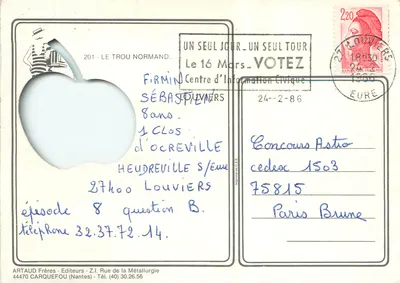 201 - LE TROU NORMAND.
UN SEUL JOUR_UN SEUL TOUR
Le 16 Mars_VOTEZ
Centre d'Information Civique
LOUVIERS
24--2-86
2,20
27 LOUVIERS
18H30
24-2
1986
EURE
FIRMIN
SÉBASTIEN
8ans.
1 Clos
d'OCREVILLE
HEUDREVILLE S/Eure
27400 LOUVIERS
épisode 8 question B.
téléphone 32.37.72.14.
Concours Astro
cedex 1503
75815
Paris Brune
ARTAUD Frères - Editeurs - Z.I. Rue de la Métallurgie
44470 CARQUEFOU (Nantes) - Tél. (40) 30.26.56